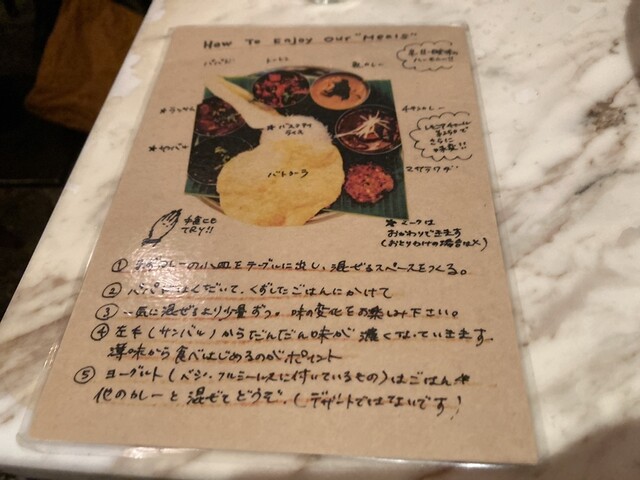 How To Enjoy Our "Meals"
パパド
魚カレー
★ラッサム
★バスマティライス
チキンカレー
★サンバル
バトゥーラ
マサラワダ
手食にも
TRY!!
★マークは
おかわりできます
(おとりわけの場合は×)
① まずカレーの小皿をテーブルに出し、混ぜるスペースをつくる。
② パパドはくだいて、くずしたごはんにかけて
③ 一気に混ぜるより少量ずつ。味の変化をお楽しみ下さい。
④ 左手(サンバル)からだんだん味が濃くなっていきます
薄味から食べはじめるのがポイント
⑤ ヨーグルト(ベジ・フルミールスに付いているもの)はごはんや
他のカレーと混ぜてどうぞ。(デザートではないです!